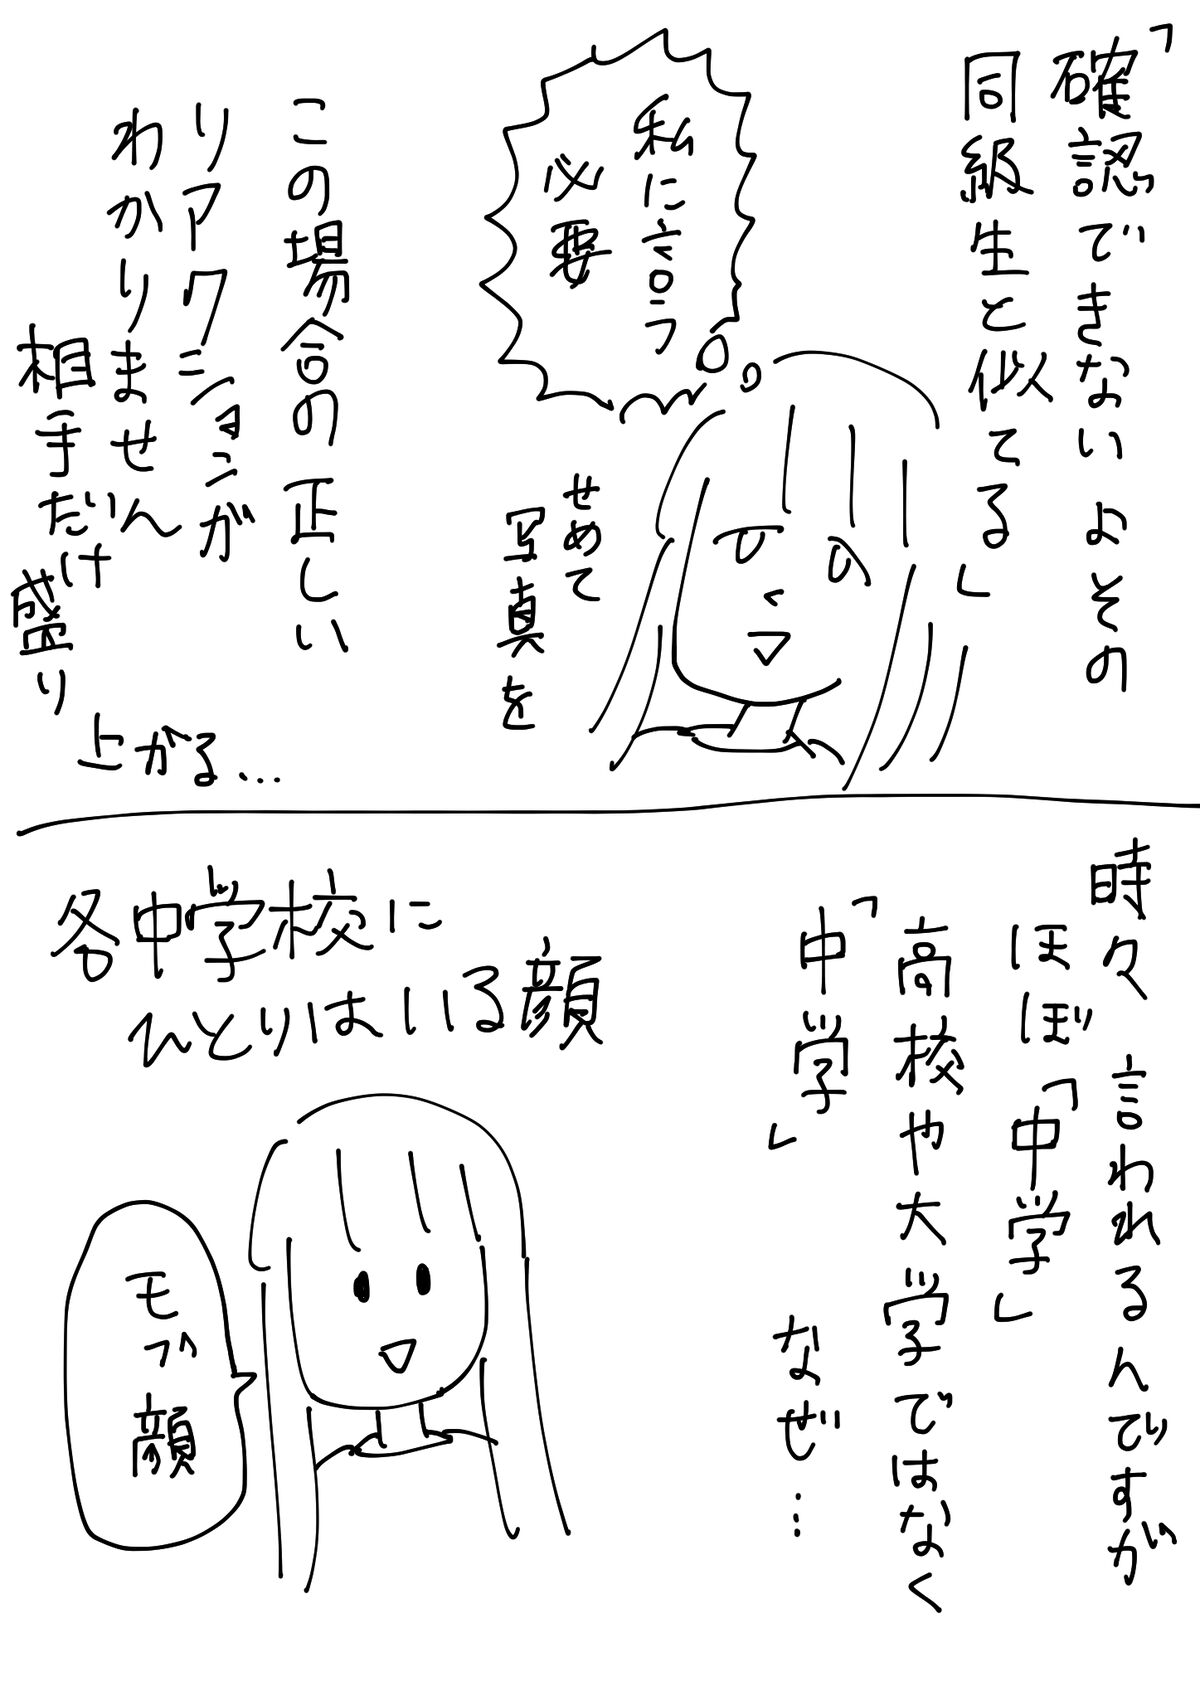 「確認できないよその
同級生と似てる」
私に言う
必要
せめて
写真を
この場合の正しい
リアクションが
わかりません
相手だけ盛り
上がる…
時々言われるんですが
ほぼ「中学」
高校や大学ではなく
「中学」
なぜ…
各中学校に
ひとりはいる顔
モブ顔